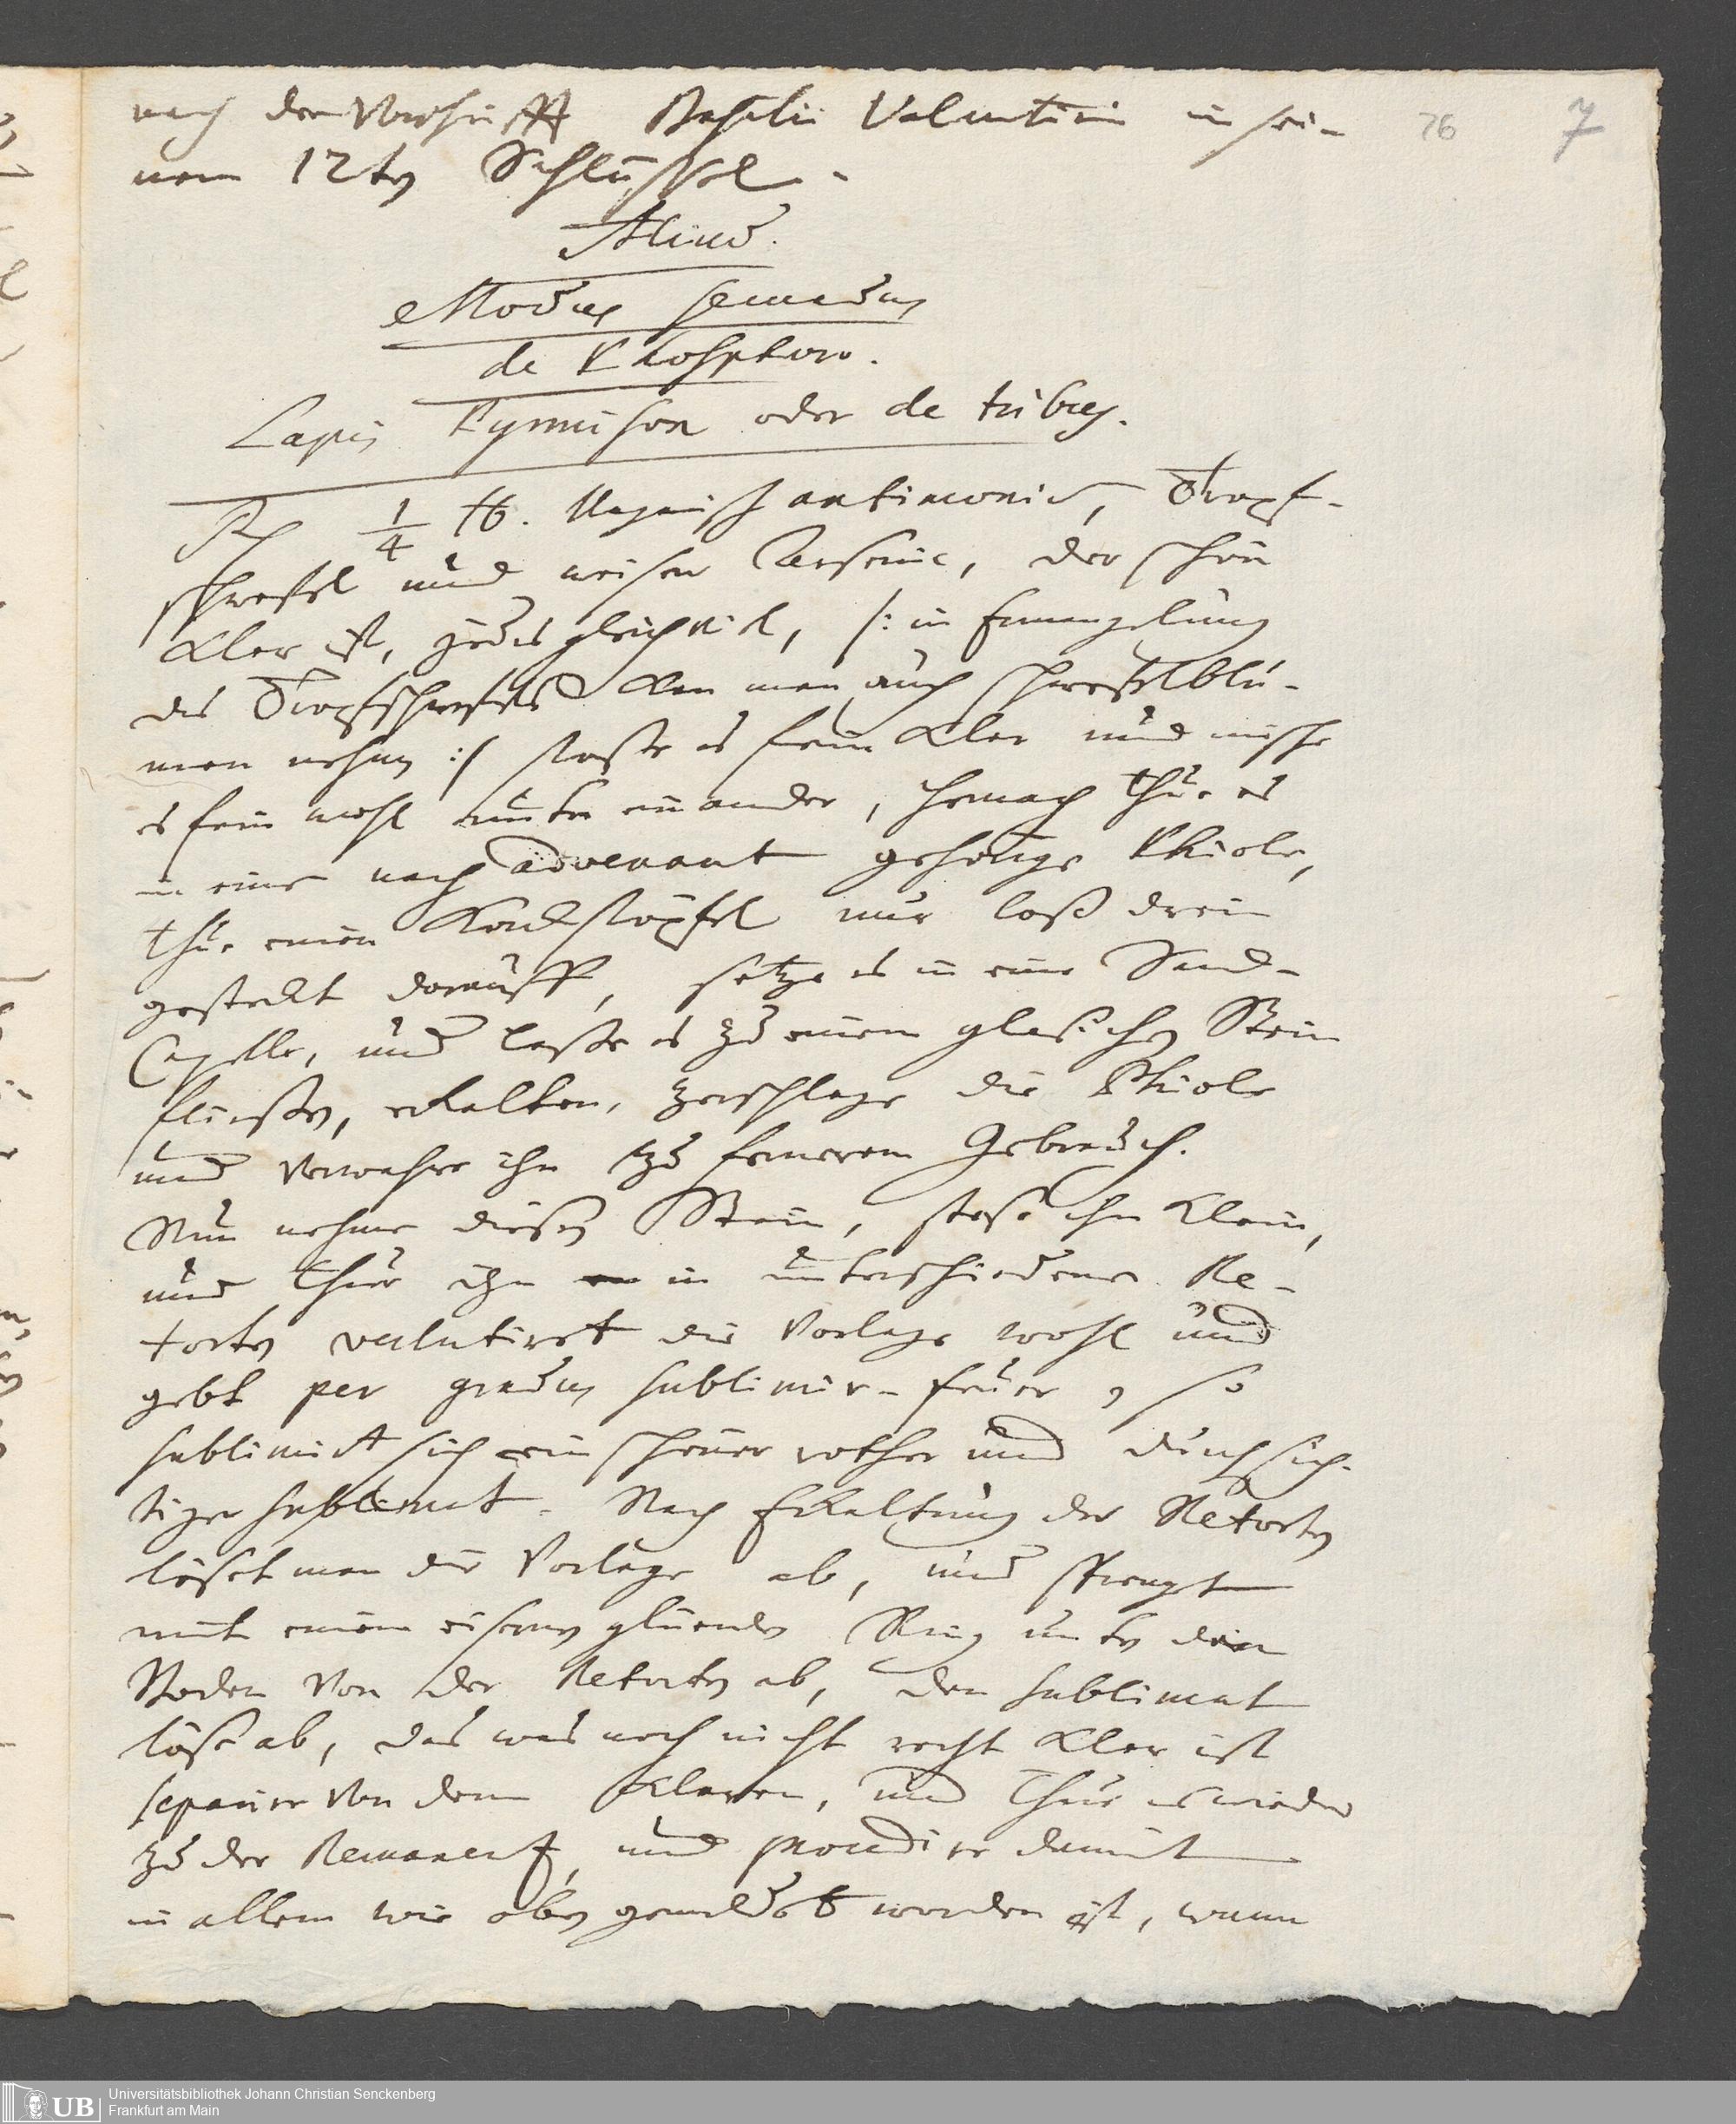 nach der Vorschrifft Basilii Valentini in sei-
nem 12ten Schlüssel.
Aliud.
Modus secundus
de Phosphoro.
Lapis Pyrmison oder de tribus.
Rp 1/4 ℔. Ungarisch antimonium, Tropf-
schweffel und weisen Arsenic, der schön
klar ist, jedes gleich viel, /: in Ermangelung
des Tropfschweffels kan man auch schweffelblu-
men nehmen :/ stosse es fein klar und mische
es fein wohl unter einander, hernach thue es
in eine nach advenant gehörige Phiole,
thue einen Korckstöpfel nur loß drein
gesteckt darauff, setze es in eine Sand-
Capelle, und lasse es zu einem glasichen Stein
fliessen, erkalten, zerschlage die Phiole
und verwahre ihn zu fernerem Gebrauch.
Nun nehme diesen Stein, stosse ihn klein,
und thue ihn in unterschiedene Re-
torten verlutiret die Vorlage wohl und
gebt per gradus sublimir-feuer, so
sublimirt sich ein schöner rother und durchsich-
tiger sublimat. Nach Erkaltung der Retorten
löset man die Vorlage ab, und sprengt
mit einem eisernen glüenden Ring unten den
Boden von der Retorten ab, den sublimat
löse ab, das was noch nicht recht klar ist
separire von dem Klaren, und thue es wieder
zu der Remanentz, und procedire damit
in allem wie oben gemeldet worden ist, wann
76
7
UB
Universitätsbibliothek Johann Christian Senckenberg
Frankfurt am Main